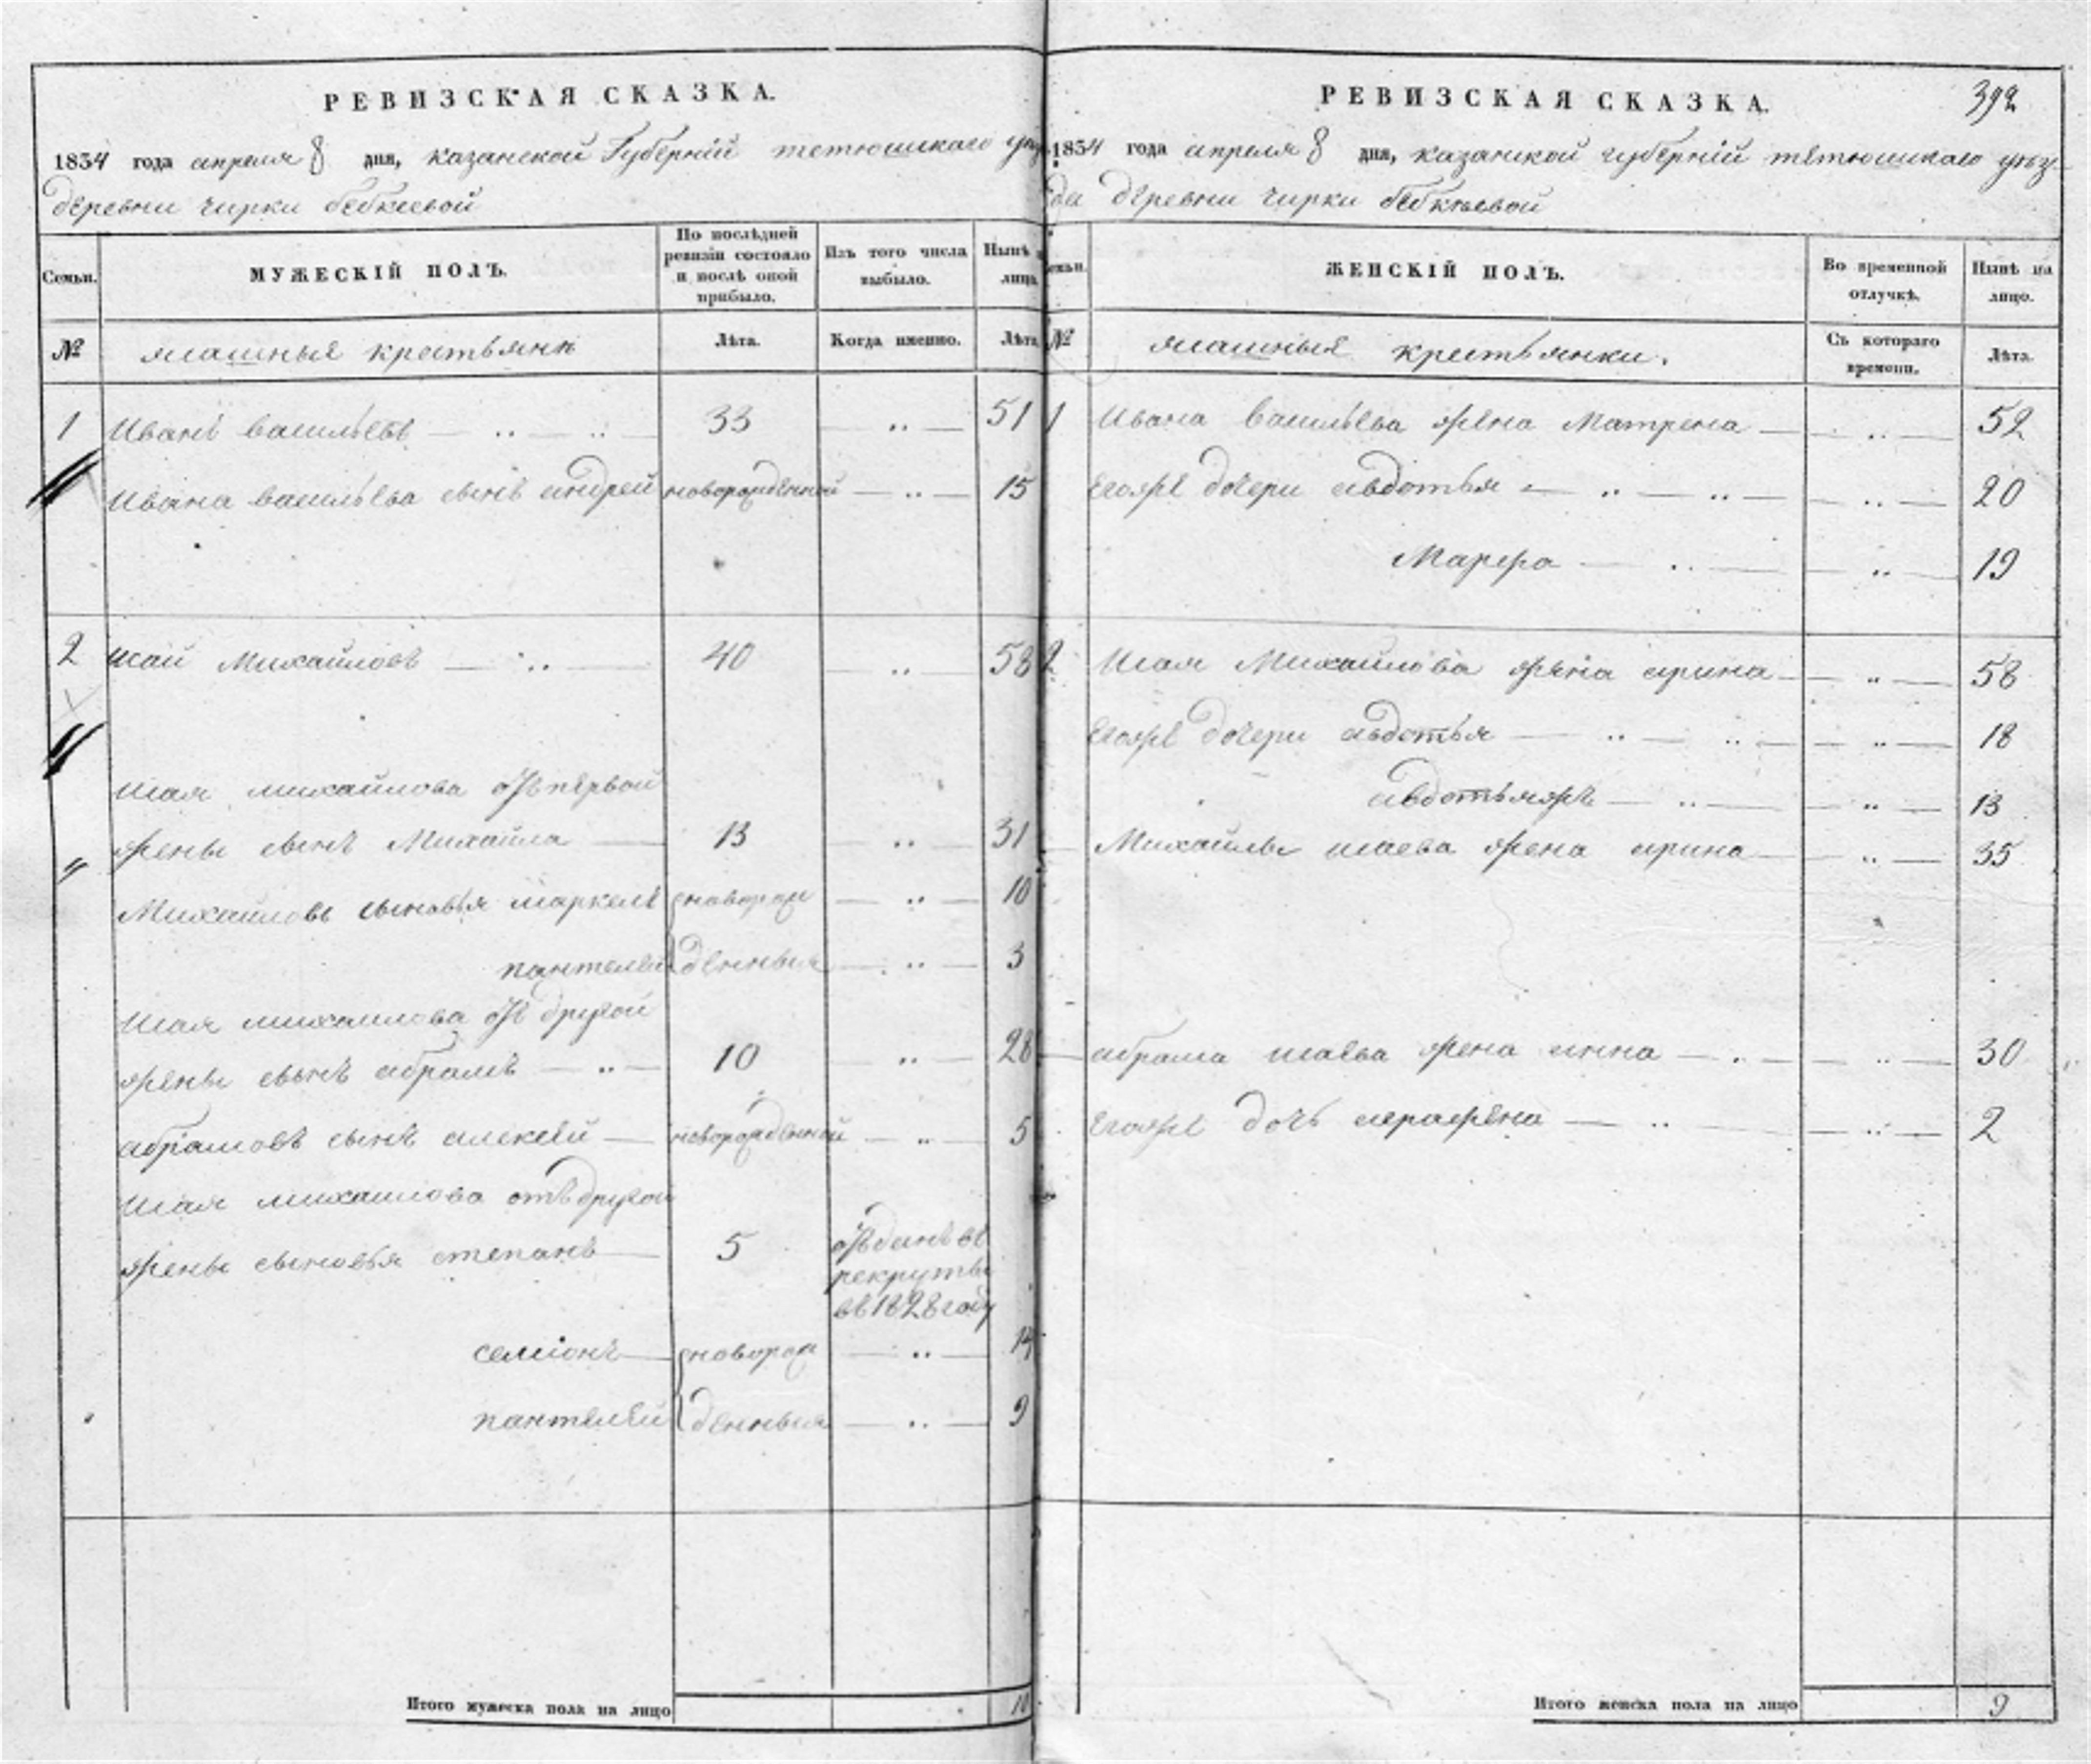 РЕВИЗСКАЯ СКАЗКА.
1834 года апреля 8 дня, казанской Губернiй тетюшскаго уѣз
деревни чирки бебкеевой
Семьи.
МУЖЕСКІЙ ПОЛЪ.
По послѣдней ревизіи состояло и послѣ оной прибыло.
Изъ того числа выбыло.
Нынѣ н лица
№
ясашныя крестьянѣ
Лѣта.
Когда именно.
Лѣта
1 Иванъ васильевъ — .. — .. 33 .. — 51
Ивана васильева сынъ андрей новорожденной — .. — 15
2 исай Михайловъ — .. — 40 .. — 58
исая михайлова отъ первой
жены сынъ Михайла — 13 .. — 31
Михайловы сыновья маркелъ новорож — .. — 10
пантелей денныя — .. — 3
исая михаилова отъ другой
жены сынъ абрамъ — .. — 10 .. — 28
абрамовъ сынъ алексей — новорожденной — .. — 5
исая михаилова отъ другой
жены сыновья степанъ — 5 отъданъ въ
рекруты
въ 1828 году
семіонъ — новорож — .. — 14
пантелей денныя — .. — 9
Итого мужеска пола на лицо 10
РЕВИЗСКАЯ СКАЗКА.
392
1834 года апреля 8 дня, казанской губернiй тетюшскаго уѣз-
да деревни чирки бебкѣевой
семьи.
ЖЕНСКІЙ ПОЛЪ.
Во временной отлучкѣ.
Нынѣ на лицо.
№
ясашныя крестьянки.
Съ котораго времени.
Лѣта.
1 Ивана васильева жена Матрена — — .. — 52
Егожъ дочери авдотья — .. — .. — — .. — 20
Марфа — .. — — .. — 19
2 Исая Михайлова жена ирина — — .. — 58
Егожъ дочери авдотья — .. — .. — — .. — 18
авдотьяжъ — .. — — .. — 13
Михайлы исаева жена ирина — .. — 35
абрама исаева жена анна — . — — .. — 30
Егожъ дочь аграфена — .. — — .. — 2
Итого женска пола на лицо 9